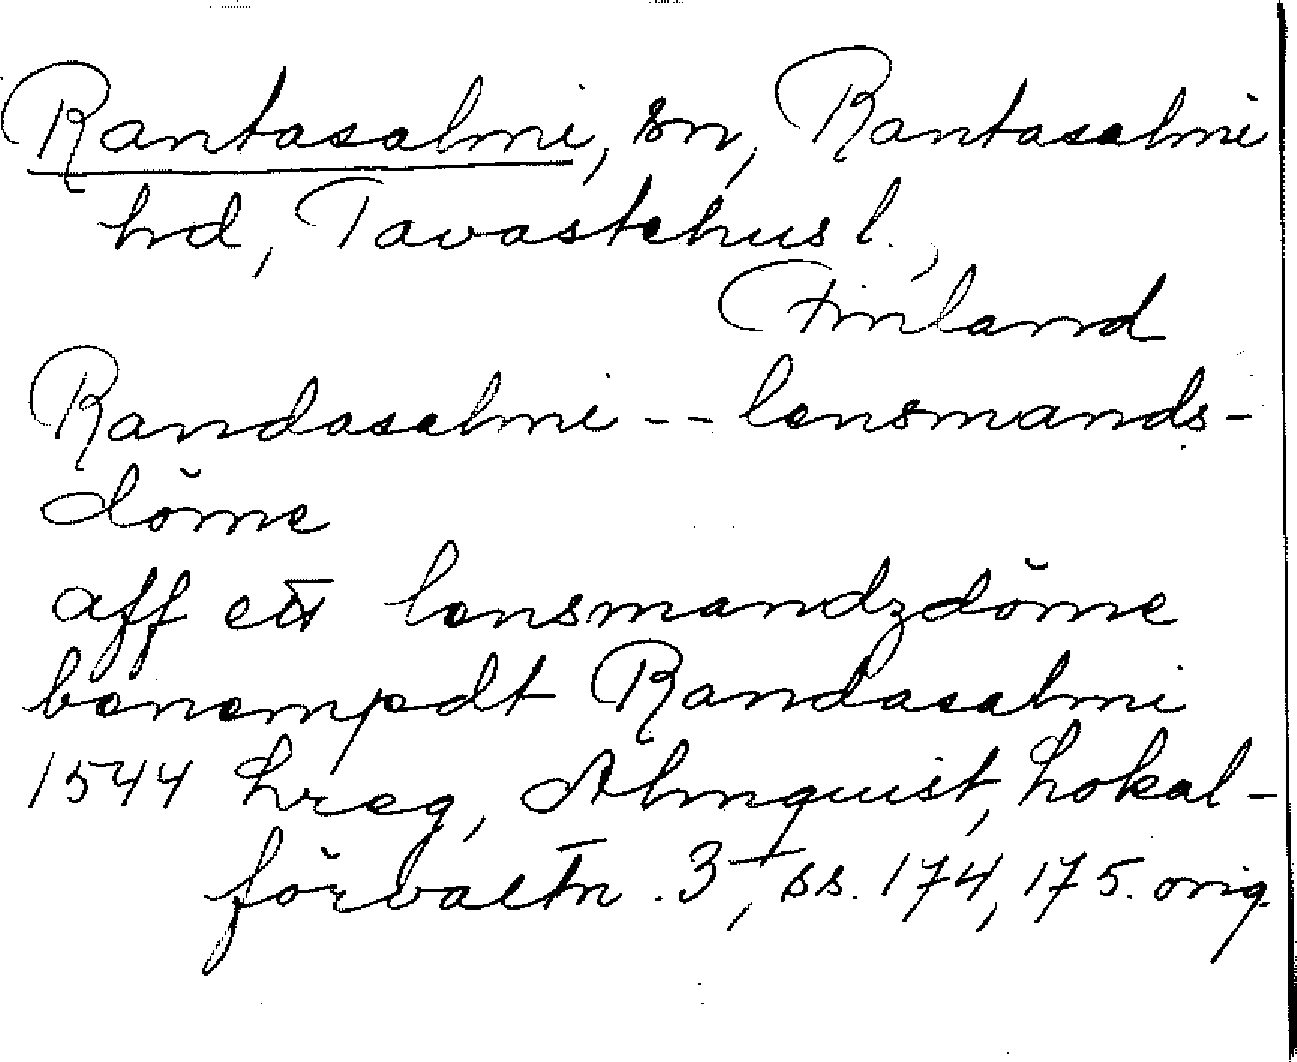 Rantasalmi, sn, Rantasalmi
hd, Tavastehus l.,
Finland
Randasalmi -- lensmands-
döme
aff ett lensmandzdöme
benempdt Randasalmi
1544 Lreg, Almquist, Lokal-
förvaltn. 3, ss. 174, 175. orig.